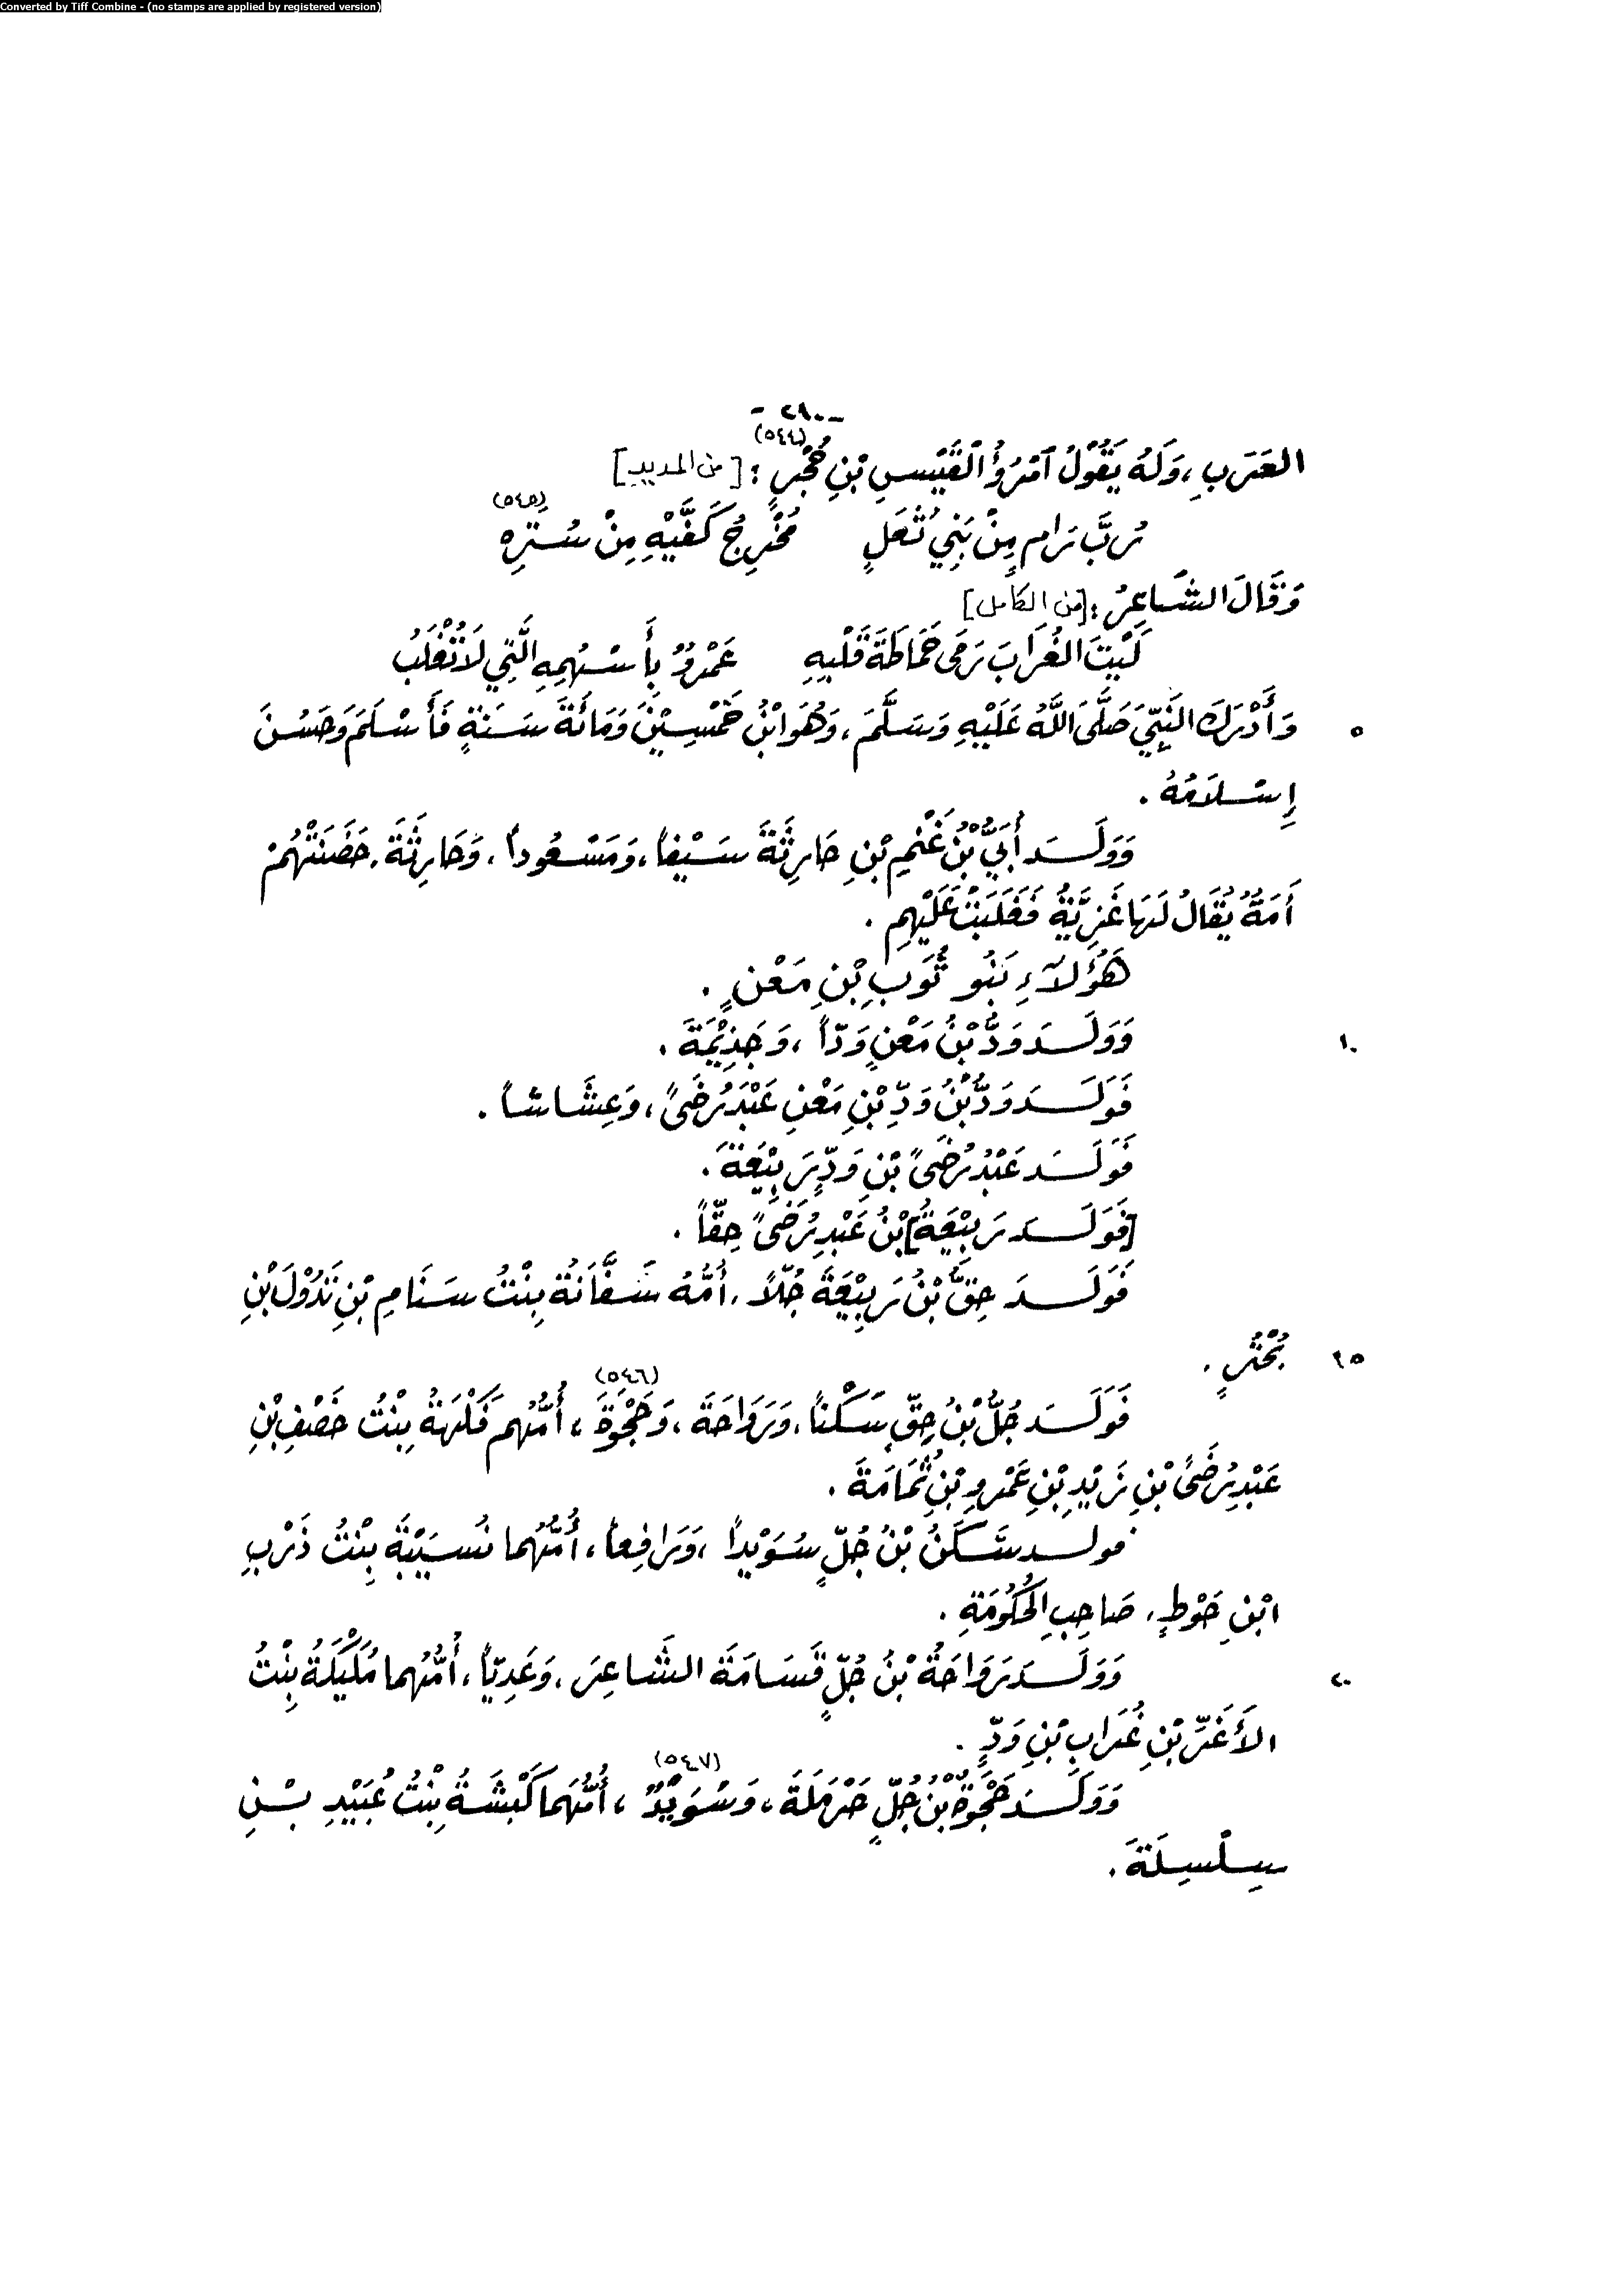 Converted by Tiff Combine - (no stamps are applied by registered version)
- ٢٩٠ -
العَرَبِ، وَلَهُ يَقُوْلُ آمْرُؤُ القَيْسِ بْنِ حُجْرٍ (٥٤٤) : [من المديد]
رُبَّ رَامٍ مِنْ بَنِي ثُعَلٍ    مُخْرِجُ كَفَّيْهِ مِنْ سُتَرِهِ (٥٤٥)
وَقَالَ الشَّاعِرُ : [من الكامل]
لَيْتَ الغُرَابَ رَمَى حَمَاطَةَ قَلْبِهِ    عَمْرٌو بِأَسْهُمِهِ الَّتِي لَا تُغْلَبُ
٥ وَأَدْرَكَ النَّبِيَّ صَلَّى اللَّهُ عَلَيْهِ وَسَلَّمَ، وَهُوَ ابْنُ خَمْسِيْنَ وَمَائَةَ سَنَةٍ فَأَسْلَمَ وَحَسُنَ
إِسْلَامُهُ .
وَوَلَدَ أُبَيُّ بْنُ غَنْمِ بْنِ حَارِثَةَ سَيْفاً، وَمَسْعُوداً، وَحَارِثَةَ، حَضَنَتْهُمْ
أَمَةٌ يُقَالُ لَهَا غَزِيَّةُ فَغَلَبَتْ عَلَيْهِمِ .
هَؤُلَآءِ بَنُو ثُوَبِ بْنِ مَعْنٍ .
١٠ وَوَلَدَ وَدُّ بْنُ مَعْنٍ وَدّاً، وَجَذِيْمَةَ .
فَوَلَدَ وَدُّ بْنُ وَدِّ بْنِ مَعْنٍ عَبْدَ رُضَىً، وَعِشَاشاً .
فَوَلَدَ عَبْدُ رُضَىً بْنِ وَدٍّ رَبِيْعَةَ .
[فَوَلَدَ رَبِيْعَةُ] بْنُ عَبْدِ رُضَىً حِقّاً .
فَوَلَدَ حِقُّ بْنُ رَبِيْعَةَ جُلّاً، أُمُّهُ سَفَّانَةُ بِنْتُ سَنَامِ بْنِ تَدُوْلَ بْنِ
١٥ بُحْتُرٍ .
فَوَلَدَ جُلُّ بْنُ حِقٍّ سَكْناً، وَرَوَاحَةَ، وَحَجْوَةَ (٥٤٦)، أُمُّهُم فَكْهَةُ بِنْتُ خَصْفِ بْنِ
عَبْدِ رُضَىً بْنِ زَيْدِ بْنِ عَمْرِو بْنِ ثُمَامَةَ .
فولد سَكَنُ بْنُ جُلٍّ سُوَيْداً، وَرَافِعاً، أُمُّهُما نُسَيْبَةُ بِنْتُ ذَرْبِ
ابْنِ حَوْطٍ، صَاحِبِ الحُكُومَةِ .
٢٠ وَوَلَدَ رَوَاحَةُ بْنُ جُلٍّ قَسَامَةَ الشَّاعِرَ، وَعَدِيّاً، أُمُّهُما مُلَيْكَةُ بِنْتُ
الأَغَرِّ بْنِ غُرَابِ بْنِ وَدٍّ .
وَوَلَدَ حَجْوَةُ بْنُ جُلٍّ حَرْمَلَةَ، وَسُوَيْدٌ (٥٤٧)، أُمُّهُمَا كَبْشَةُ بِنْتُ عُبَيْدِ بْنِ
سِلْسِلَةَ .